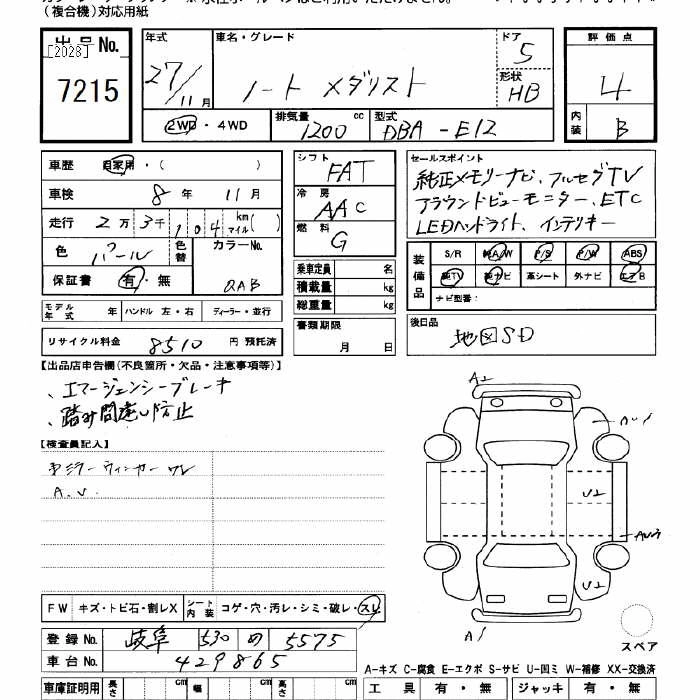 (複合機)対応用紙
出品No. [2028] 7215
年式 27/11月
車名・グレード ノート メダリスト
ドア 5
形状 HB
評価点 4
内装 B
2WD・4WD
排気量 1200 cc
型式 DBA-E12
車歴 自家用・( )
車検 8年 11月
走行 2万3千104 km マイル( )
色 パール 色替 カラーNo. QAB
保証書 有・無
シフト FAT
冷房 AAC
燃料 G
乗車定員 名
積載量 kg
総重量 kg
セールスポイント
純正メモリーナビ、フルセグTV
アラウンドビューモニター、ETC
LEDヘッドライト、インテリキー
装備品 S/R 純A/W P/S P/W ABS
純TV 純ナビ 革シート 外ナビ エアB
ナビ型番:
モデル年式 年 ハンドル 左・右 ディーラー・並行
リサイクル料金 8510 円 預託済
書類期限 月 日
後日品 地図SD
【出品店申告欄(不良箇所・欠品・注意事項等)】
、エマージェンシーブレーキ
、踏み間違い防止
【検査員記入】
ミラーウィンカーワレ
A.U.
A2
U2
U2
A1
FW キズ・トビ石・割レX シート内装 コゲ・穴・汚レ・シミ・破レ・スレ
登録No. 岐阜 530 の 5575
車台No. 429865
スペア
A-キズ C-腐食 E-エクボ S-サビ U-凹ミ W-補修 XX-交換済
車庫証明用 長さ cm 幅 cm 高さ cm
工具 有・無 ジャッキ 有・無